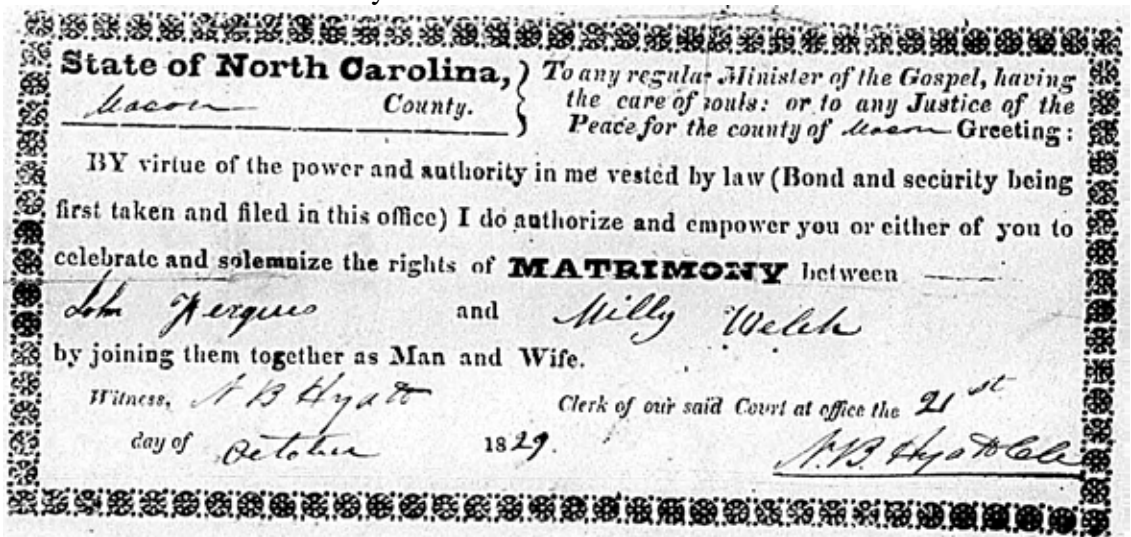 State of North Carolina,
Macon County.
To any regular Minister of the Gospel, having
the care of souls: or to any Justice of the
Peace for the county of Macon Greeting:
BY virtue of the power and authority in me vested by law (Bond and security being
first taken and filed in this office) I do authorize and empower you or either of you to
celebrate and solemnize the rights of MATRIMONY between
John Fergus and Milly Welch
by joining them together as Man and Wife.
Witness, N B Hyatt Clerk of our said Court at office the 21st
day of October 1829.
N.B. Hyatt Clk